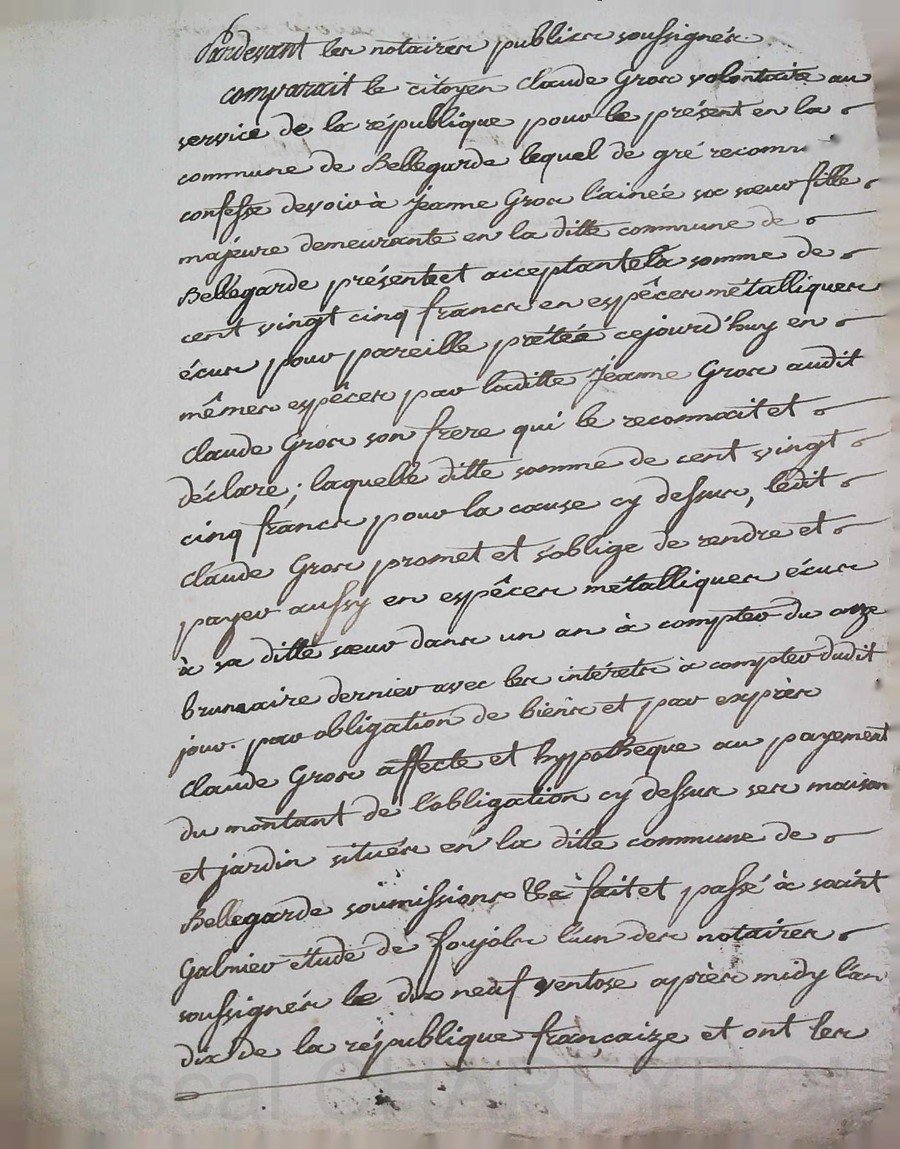 Pardevant les notaires publics soussignés
comparait le citoyen Claude Gros volontaire au
service de la république pour le présent en la
commune de Bellegarde lequel de gré reconnu
confesse devoir à Jeanne Gros l'ainée sa sœur fille
majeure demeurante en la ditte commune de
Bellegarde présente et acceptante la somme de
cent vingt cinq francs en espêces métalliques
écus pour pareille prétée cejourd'huy en
mêmes espêces par laditte Jeanne Gros audit
Claude Gros son frere qui le reconnait et
déclare ; laquelle ditte somme de cent vingt
cinq francs pour la cause cy dessus, ledit
Claude Gros promet et s'oblige de rendre et
payer aussy en espêces métalliques écus
à sa ditte sœur dans un an à compter du onze
brumaire dernier avec les intérets à compter dudit
jour. par obligation de biens et par exprès
Claude Gros affecte et hypotheque au payement
du montant de l'obligation cy dessus ses maison
et jardin situés en la ditte commune de
Bellegarde soumissions &a fait et passé à saint
Galmier étude de foujols l'un des notaires
soussignés le dix neuf ventose après midy l'an
dix de la république françaize et ont les
Pascal CHAREYRON